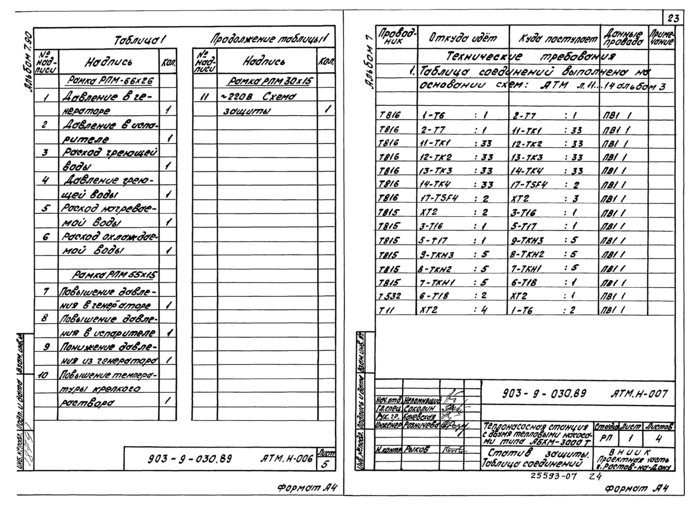 Альбом 7.90
Таблица 1
№ над- писи
Надпись
Кол.
Рамка РПМ-66х26
1 Давление в ге-
нераторе 1
2 Давление в испа-
рителе 1
3 Расход греющей
воды 1
4 Давление грею-
щей воды 1
5 Расход нагревае-
мой воды 1
6 Расход охлаждае-
мой воды 1
Рамка РПМ 55х15
7 Повышение давле-
ния в генераторе 1
8 Повышение давле-
ния в испарителе 1
9 Понижение давле-
ния из генератора 1
10 Повышение темпера-
туры крепкого
раствора 1
Продолжение таблицы 1
№ над- писи
Надпись
Кол.
Рамка РПМ 30х15
11 ~220В Схема
защиты 1
903-9-030.89 АТМ.Н-006 Лист 5
Формат А4
23
Альбом 7
Провод- ник
Откуда идёт
Куда поступает
Данные провода
Приме- чание
Технические требования
1. Таблица соединений выполнена на
основании схем: АТМ л.11...14 альбом 3
Т816 1-Т6 : 1 2-Т7 : 1 ПВ1 1
Т816 2-Т7 : 1 11-ТК1 : 33 ПВ1 1
Т816 11-ТК1 : 33 12-ТК2 : 33 ПВ1 1
Т816 12-ТК2 : 33 13-ТК3 : 33 ПВ1 1
Т816 13-ТК3 : 33 14-ТК4 : 33 ПВ1 1
Т816 14-ТК4 : 33 17-TSF4 : 2 ПВ1 1
Т816 17-TSF4 : 2 ХТ2 : 3 ПВ1 1
Т815 ХТ2 : 2 3-Т16 : 1 ПВ1 1
Т815 3-Т16 : 1 5-Т17 : 1 ПВ1 1
Т815 5-Т17 : 1 9-ТКН3 : 5 ПВ1 1
Т815 9-ТКН3 : 5 8-ТКН2 : 5 ПВ1 1
Т815 8-ТКН2 : 5 7-ТКН1 : 5 ПВ1 1
Т815 7-ТКН1 : 5 6-Т18 : 1 ПВ1 1
Т532 6-Т18 : 2 ХТ2 : 1 ПВ1 1
Т11 ХТ2 : 4 1-Т6 : 2 ПВ1 1
903-9-030.89 АТМ.Н-007
Нач.отд.
Гл.спец. Соколин
Рук.гр.
Инженер
Н.контр. Рыков
Теплонасосная станция
с двумя тепловыми насоса-
ми типа АБХМ-3000Т
Стадия Лист Листов
РП 1 4
Статив защиты.
Таблица соединений
ВНИИК
Проектная часть
г. Ростов-на-Дону
25593-07 24
Формат А4